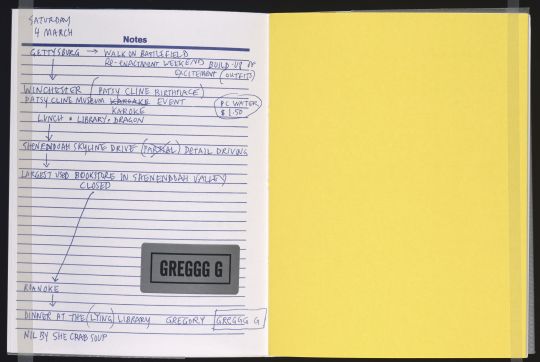 SATURDAY
4 MARCH
Notes
GETTYSBURG → WALK ON BATTLEFIELD
RE-ENACTMENT WEEKEND BUILD-UP OF
EXCITEMENT (OUTFITS)
WINCHESTER (PATSY CLINE BIRTHPLACE)
PATSY CLINE MUSEUM KARAOKE EVENT
KAROKE
PC WATER
$1.50
LUNCH • LIBRARY • DRAGON
SHENENDOAH SKYLINE DRIVE (PARTIAL) DETAIL DRIVING
LARGEST USED BOOKSTORE IN SHENENDOAH VALLEY
CLOSED
GREGGG G
ROANOKE
DINNER AT THE (LYING) LIBRARY GREGORY GREGGG G
NIL BY SHE CRAB SOUP